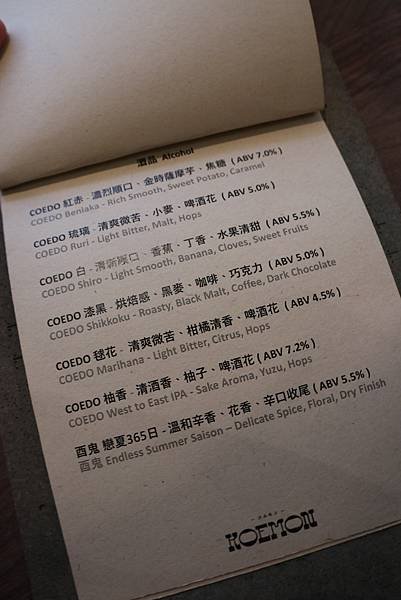 酒品 Alcohol
COEDO 紅赤 - 濃烈順口、金時薩摩芋、焦糖 ( ABV 7.0% )
COEDO Beniaka - Rich Smooth, Sweet Potato, Caramel
COEDO 琉璃 - 清爽微苦、小麥、啤酒花 ( ABV 5.0% )
COEDO Ruri - Light Bitter, Malt, Hops
COEDO 白 - 清新順口、香蕉、丁香、水果清甜 ( ABV 5.5% )
COEDO Shiro - Light Smooth, Banana, Cloves, Sweet Fruits
COEDO 漆黑 - 烘焙感、黑麥、咖啡、巧克力 ( ABV 5.0% )
COEDO Shikkoku - Roasty, Black Malt, Coffee, Dark Chocolate
COEDO 毬花 - 清爽微苦、柑橘清香、啤酒花 ( ABV 4.5% )
COEDO Marihana - Light Bitter, Citrus, Hops
COEDO 柚香 - 清酒香、柚子、啤酒花 ( ABV 7.2% )
COEDO West to East IPA - Sake Aroma, Yuzu, Hops
酉鬼 戀夏365日 - 溫和辛香、花香、辛口收尾 ( ABV 5.5% )
酉鬼 Endless Summer Saison – Delicate Spice, Floral, Dry Finish
KOEMON